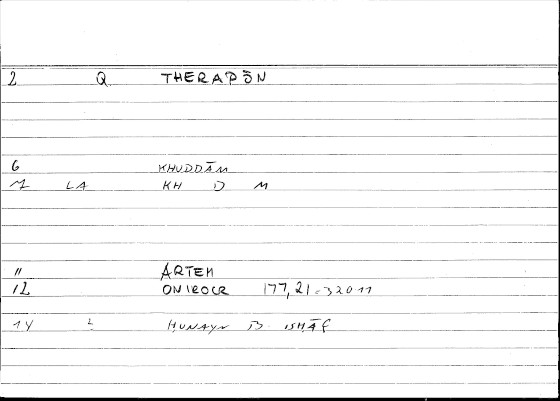 2 Q THERAPŌN
6 KHUDDĀM
7 LA KH D M
11 ARTEM
12 ONIROCR 177,21 = 320 11
14 HUNAYN B ISHĀQ